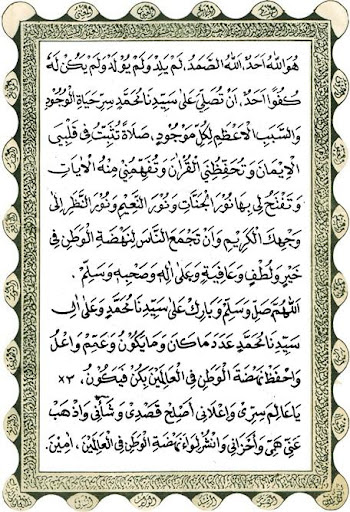 هُوَ اللهُ اَحَدٌ، اَللهُ الصَّمَدُ، لَمْ يَلِدْ وَلَمْ يُوْلَدْ وَلَمْ يَكُنْ لَهُ
كُفُوًا اَحَدٌ، اَنْ تُصَلِّيَ عَلَى سَيِّدِنَا مُحَمَّدٍ سِرِّ حَيَاةِ الْوُجُوْدِ
وَالسَّبَبِ الْاَعْظَمِ لِكُلِّ مَوْجُوْدٍ، صَلَاةً تُثَبِّتُ فِى قَلْبِى
الْاِيْمَانَ وَتُحَفِّظُنِى الْقُرْاٰنَ وَتُفَهِّمُنِى مِنْهُ الْاٰيَاتِ
وَتَفْتَحُ لِى بِهَا نُوْرَ الْجَنَّاتِ وَنُوْرَ النَّعِيْمِ وَنُوْرَ النَّظَرِ اِلَى
وَجْهِكَ الْكَرِيْمِ وَاَنْ تَجْمَعَ النَّاسَ لِنَهْضَةِ الْوَطَنِ فِى
خَيْرٍ وَلُطْفٍ وَعَافِيَةٍ وَعَلَى اٰلِهِ وَصَحْبِهِ وَسَلِّمْ.
اَللّٰهُمَّ صَلِّ وَسَلِّمْ وَبَارِكْ عَلَى سَيِّدِنَا مُحَمَّدٍ وَعَلَى اٰلِ
سَيِّدِنَا مُحَمَّدٍ عَدَدَ مَا كَانَ وَمَا يَكُوْنُ وَعَمِّمْ وَاعْلُ
وَاحْفَظْ نَهْضَةَ الْوَطَنِ فِى الْعَالَمِيْنَ بِكُنْ فَيَكُوْنُ، ×٣
يَا عَالِمَ سِرِّى وَاِعْلَانِى اَصْلِحْ قَصْدِى وَشَأْنِى وَاذْهَبْ
عَنِّى هَمِّى وَاَحْزَانِى وَانْشُرْ لِوَاءَ نَهْضَةِ الْوَطَنِ فِى الْعَالَمِيْنَ، اٰمِيْنَ.